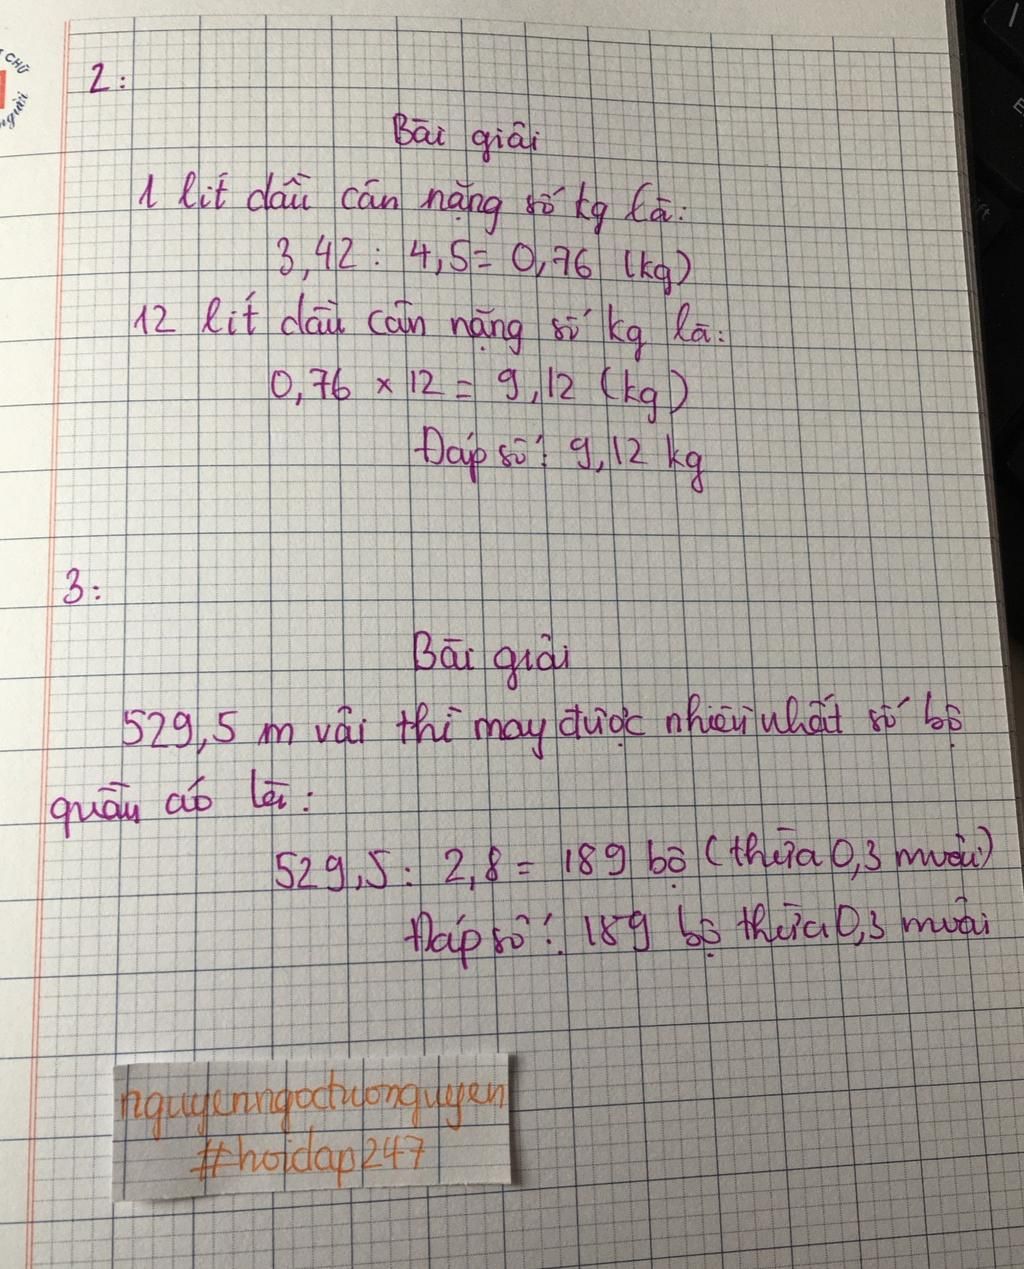 CHỮ
người
2:
Bài giải
1 lít dầu cân nặng số kg là:
3,42 : 4,5 = 0,76 (kg)
12 lít dầu cân nặng số kg là:
0,76 × 12 = 9,12 (kg)
Đáp số: 9,12 kg
3:
Bài giải
529,5 m vải thì may được nhiều nhất số bộ
quần áo là:
529,5 : 2,8 = 189 bộ (thừa 0,3 m vải)
Đáp số: 189 bộ thừa 0,3 m vải
nguyenngoctuonguyen
#hoidap247